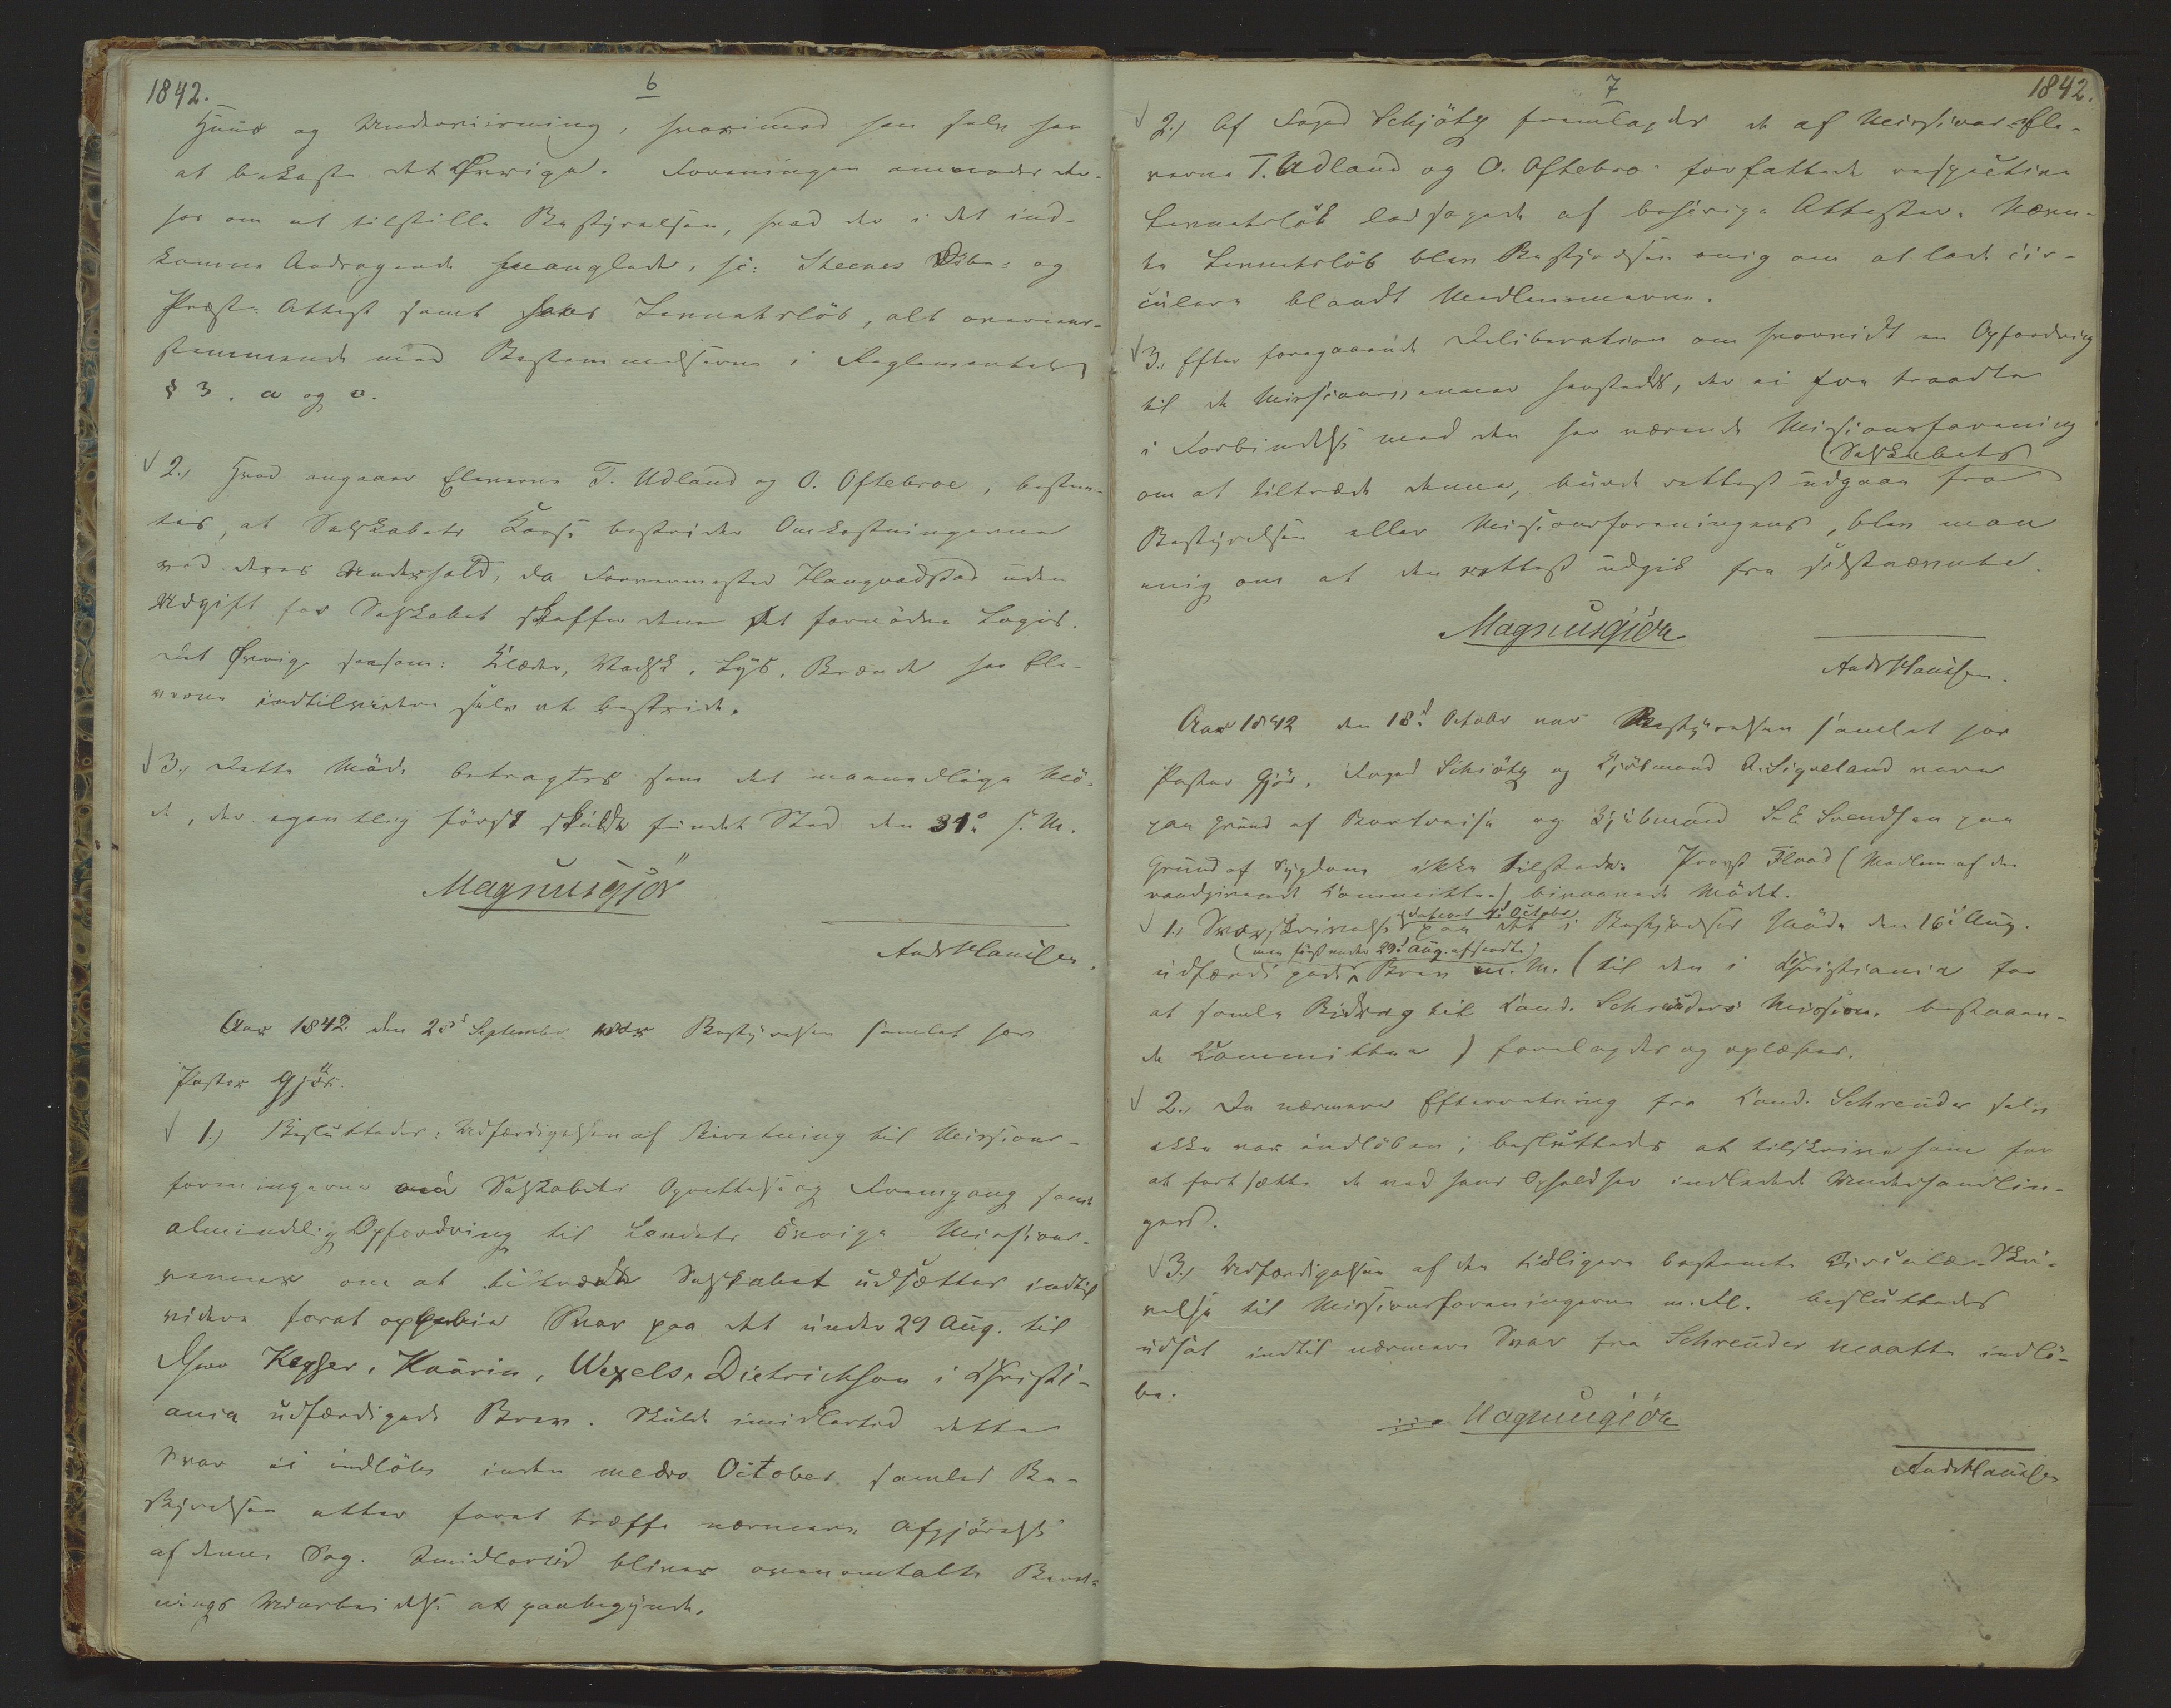 1842.
6
Huus og Underviisning, hvorimod han selv har
at bekoste det Øvrige. Foreningen anmodes der-
for om at tilstille Bestyrelsen, hvad der i det ind-
komne Andragende manglede, sc: Steenes Døbe- og
Præste-Attest samt hans Levnetsløb, alt overeens-
stemmende med Bestemmelserne i Reglementets
§ 3. a og c.
2., Hvad angaaer Eleverne T. Udland og O. Oftebroe, bestem-
tes, at Selskabets Kasse bestrider Omkostningerne
ved deres Underhold, da Farvermester Haugvaldstad uden
Udgift for Selskabet skaffer dem det fornødne Logis.
Det Øvrige saasom: Klæder, Vadsk, Lys, Brænde har Ele-
verne indtil videre selv at bestride.
3., Dette Møde betragtes som det maanedlige Mø-
de, der egentlig først skulde fundet Sted den 31te s. M.
Magnus Gjør
And. Hauge
Aar 1842 den 23de September var Bestyrelsen samlet hos
Pastor Gjør.
1.) Besluttedes: Udfærdigelsen af Beretning til Missions-
foreningerne om Selskabets Oprettelse og Fremgang samt
almindelig Opfordring til Landets øvrige Missions-
venner om at tiltræde Selskabet udsættes indtil
videre forat oppebie Svar paa det under 29 Aug. til
Dhrr Keyser, Kaurin, Wexels, Dietrichson i Christi-
ania udfærdigede Brev. Skulde imidlertid dette
Svar ei indløbe inden medio October samles Be-
styrelsen atter forat træffe nærmere Afgjørelse
af denne Sag. Imidlertid bliver ovenomtalte Beret-
nings Udarbeidelse at paabegynde.
7
1842.
2.) Af Foged Schjøtz fremlagdes de af Missions-Ele-
verne T. Udland og O. Oftebro forfattede respective
Levnetsløb ledsagede af behørige Attester. Nævn-
te Levnetsløb blev Bestyrelsen enig om at lade cir-
culere blandt Medlemmerne.
3., Efter foregaaende Deliberation om hvorvidt en Opfordring
til de Missionsvenner hersteds, der ei ere traadte
i Forbindelse med den her værende Missionsforening
om at tiltræde denne, burde rettest udgaae fra
Selskabets
Bestyrelsen eller Missionsforeningens, blev man
enig om at den rettest udgik fra sidstnævnte.
Magnus Gjør
And. Hauge
Aar 1842 den 18de October var Bestyrelsen samlet hos
Pastor Gjør. Foged Schiøtz og Kjøbmand A. Sigveland vare
paa Grund af Bortreise og Kjøbmand S. E. Svendsen paa
Grund af Sygdom ikke tilstede. Provst Flood (Medlem af den
raadgivende Committee) bivaanede Mødet.
1., Svarskrivelse dateret 4de October paa det i Bestyrelsens Møde den 16de Aug.
(men først under 29de Aug. afsendte)
udfærdigede Brev m. M. (til den i Christiania for
at samle Bidrag til Cand. Schreuders Mission bestaaen-
de Committee) forelagdes og oplæstes.
2., Da nærmere Efterretning fra Cand. Schreuder selv
ikke var indløben, besluttedes at tilskrive ham for
at fortsætte de ved hans Ophold her indledede Underhandlin-
ger.
3., Udfærdigelsen af den tidligere bestemte Circulær-Skri-
velse til Missionsforeningerne m. Fl. besluttedes
udsat indtil nærmere Svar fra Schreuder maatte indlø-
be.
Magnus Gjør
And. Hauge